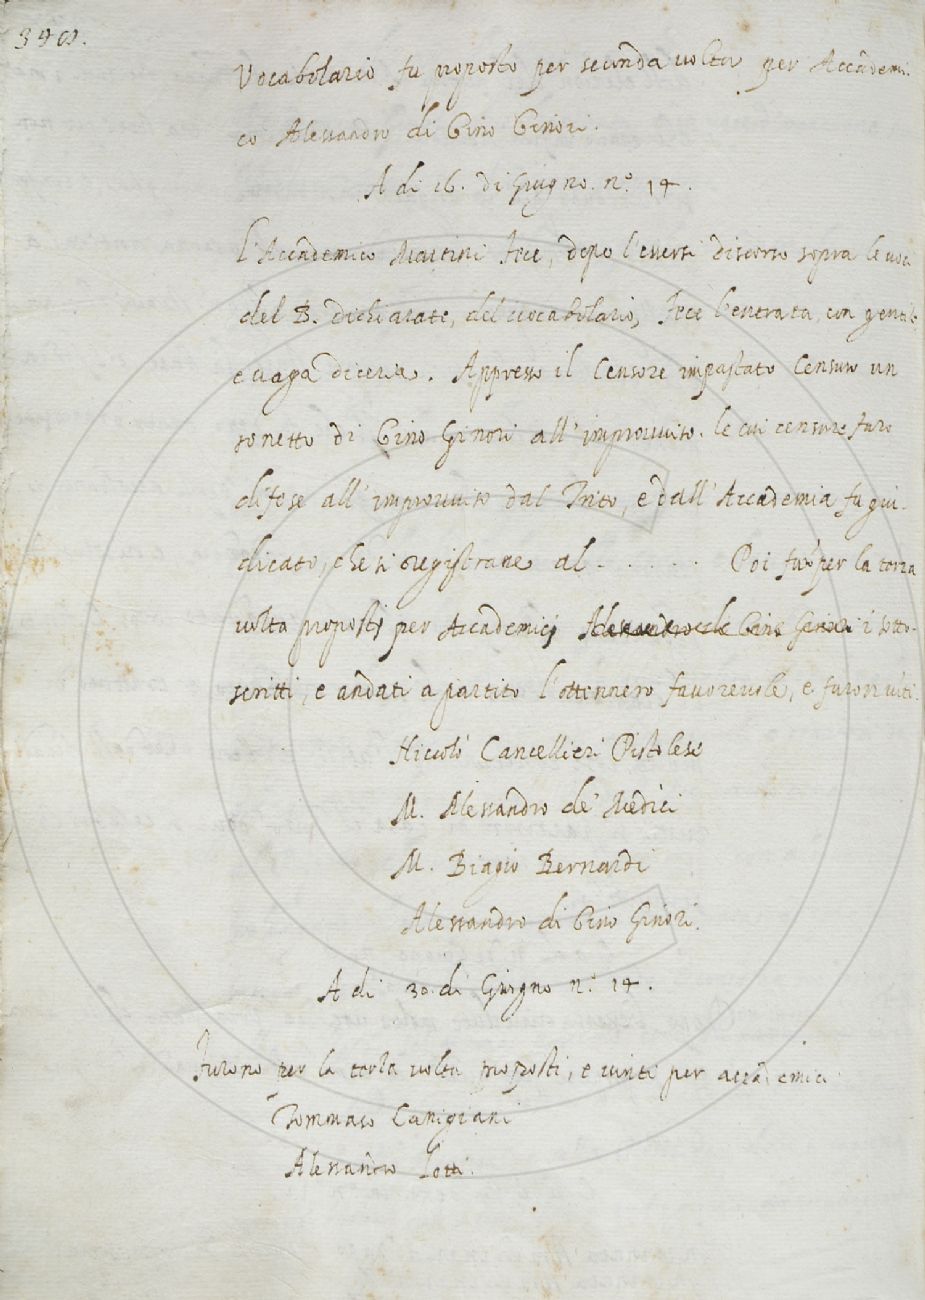 398.
Vocabolario fu proposto per seconda volta per Accademi-
co Alessandro di Gino Ginori.
A di 16. di Giugno. n.º 14.
l'Accademico Martini fece, dopo l'essersi discorso sopra le voci
del B. dichiarate, del vocabolario, fece l'entrata, con gentile
e vaga diceria. Appresso il Censore impastato Censurò un
sonetto di Gino Ginori all'improvviso. le cui censure furo
difese all'improvviso dal Trito, e dall'Accademia fu giu-
dicato, che si registrane al . . . . . Poi furº per la terza
volta proposti per Accademici Alessandro de Gino Ginori i sotto-
scritti, e andati a partito l'ottennero favorevole, e furon viti.
Niccolò Cancellieri Pistolese
M. Alessandro de' Medici
M. Biagio Bernardi
Alessandro di Gino Ginori.
A di 30. di Giugno n.º 14.
Furono per la terza volta proposti, e vinti per accademici
Tommaso Canigiani
Alessandro Lotti.